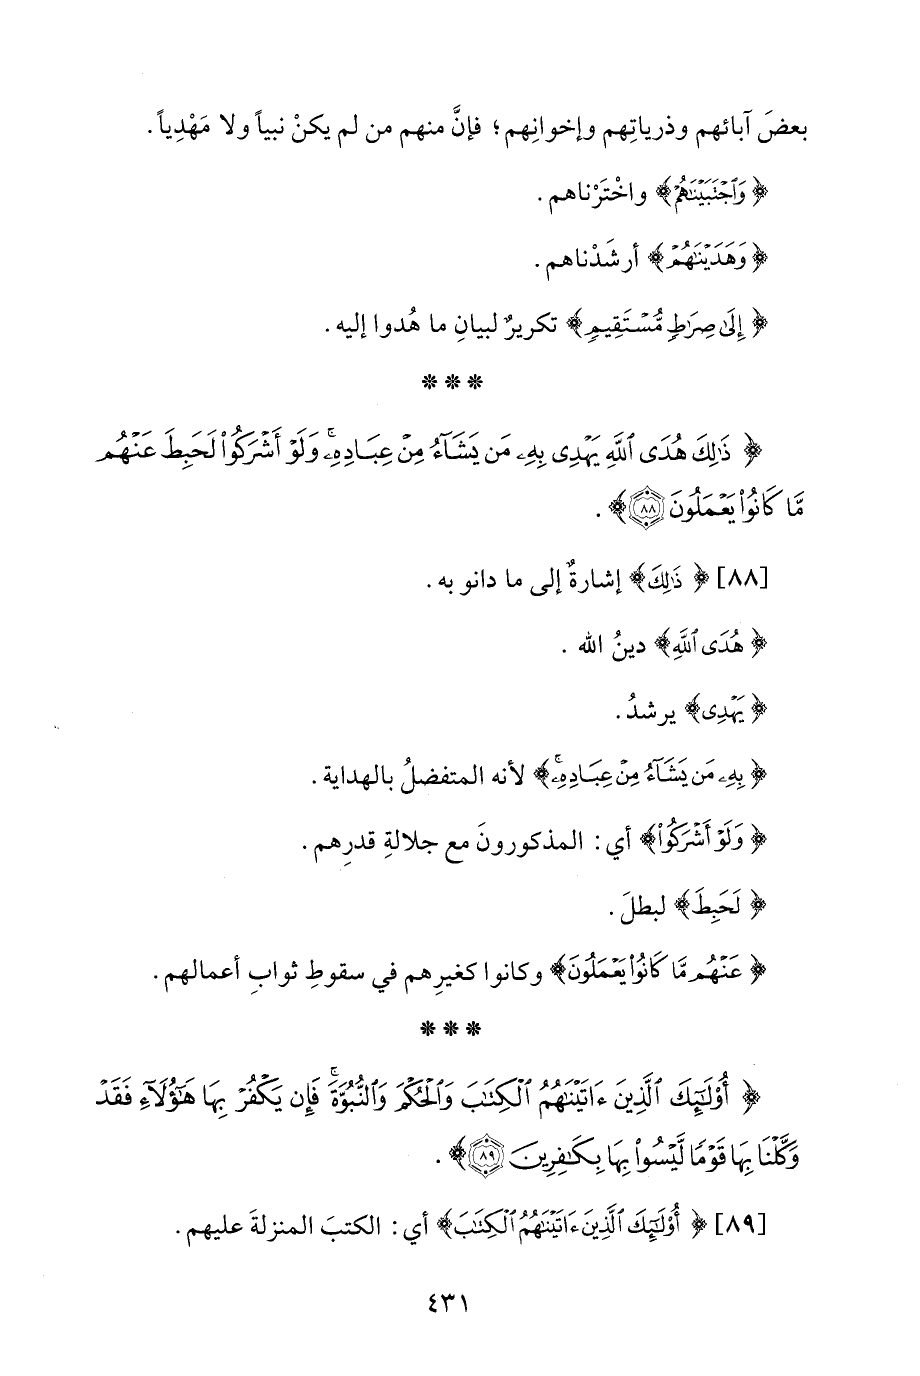 بعضَ آبائهم وذرياتِهم وإخوانِهم؛ فإنَّ منهم من لم يكنْ نبياً ولا مَهْدِياً.
﴿وَٱجْتَبَيْنَٰهُمْ﴾ واخْتَرْناهم.
﴿وَهَدَيْنَٰهُمْ﴾ أرشَدْناهم.
﴿إِلَىٰ صِرَٰطٍ مُّسْتَقِيمٍ﴾ تكريرٌ لبيانِ ما هُدوا إليه.
***
﴿ذَٰلِكَ هُدَى ٱللَّهِ يَهْدِى بِهِۦ مَن يَشَآءُ مِنْ عِبَادِهِۦۚ وَلَوْ أَشْرَكُوا۟ لَحَبِطَ عَنْهُم
مَّا كَانُوا۟ يَعْمَلُونَ ٨٨﴾.
[٨٨] ﴿ذَٰلِكَ﴾ إشارةٌ إلى ما دانو به.
﴿هُدَى ٱللَّهِ﴾ دينُ الله.
﴿يَهْدِى﴾ يرشدُ.
﴿بِهِۦ مَن يَشَآءُ مِنْ عِبَادِهِۦۚ﴾ لأنه المتفضلُ بالهداية.
﴿وَلَوْ أَشْرَكُوا۟﴾ أي: المذكورونَ مع جلالةِ قدرِهم.
﴿لَحَبِطَ﴾ لبطلَ.
﴿عَنْهُم مَّا كَانُوا۟ يَعْمَلُونَ﴾ وكانوا كغيرِهم في سقوطِ ثوابِ أعمالهم.
***
﴿أُو۟لَٰٓئِكَ ٱلَّذِينَ ءَاتَيْنَٰهُمُ ٱلْكِتَٰبَ وَٱلْحُكْمَ وَٱلنُّبُوَّةَۚ فَإِن يَكْفُرْ بِهَا هَٰٓؤُلَآءِ فَقَدْ
وَكَّلْنَا بِهَا قَوْمًا لَّيْسُوا۟ بِهَا بِكَٰفِرِينَ ٨٩﴾.
[٨٩] ﴿أُو۟لَٰٓئِكَ ٱلَّذِينَ ءَاتَيْنَٰهُمُ ٱلْكِتَٰبَ﴾ أي: الكتبَ المنزلةَ عليهم.
٤٣١